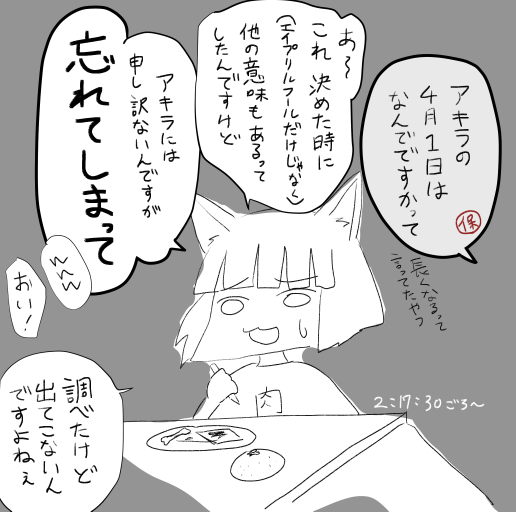 アキラの
4月1日は
なんでですかって
保
長くなるって
言ってたやつ
あ～
これ 決めた時に
(エイプリルフールだけじゃなく)
他の意味もあるって
したんですけど
アキラには
申し訳ないんですが
忘れてしまって
www
おい!
肉
2:17:30ごろ～
調べたけど
出てこないん
ですよねぇ